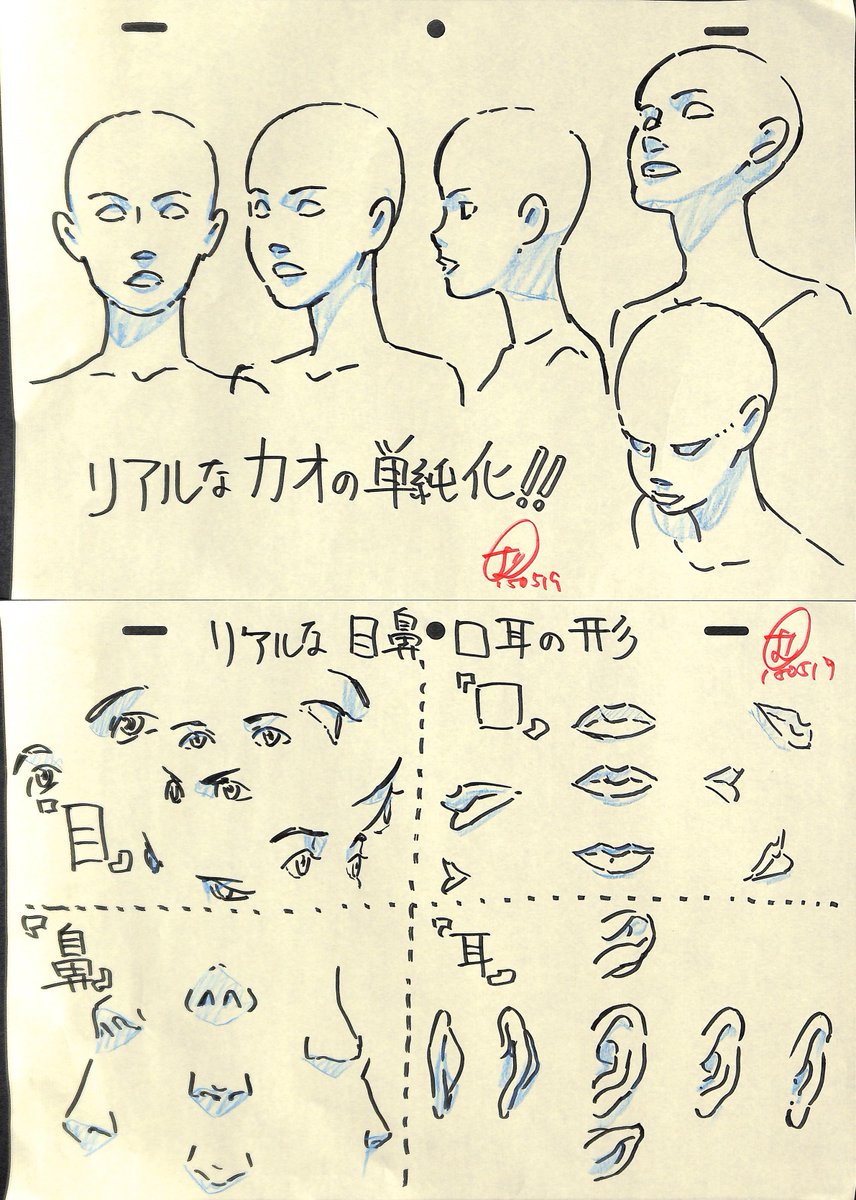 リアルなカオの単純化!!
150519
リアルな 目鼻口耳の形
150519
『目』
『口』
『鼻』
『耳』